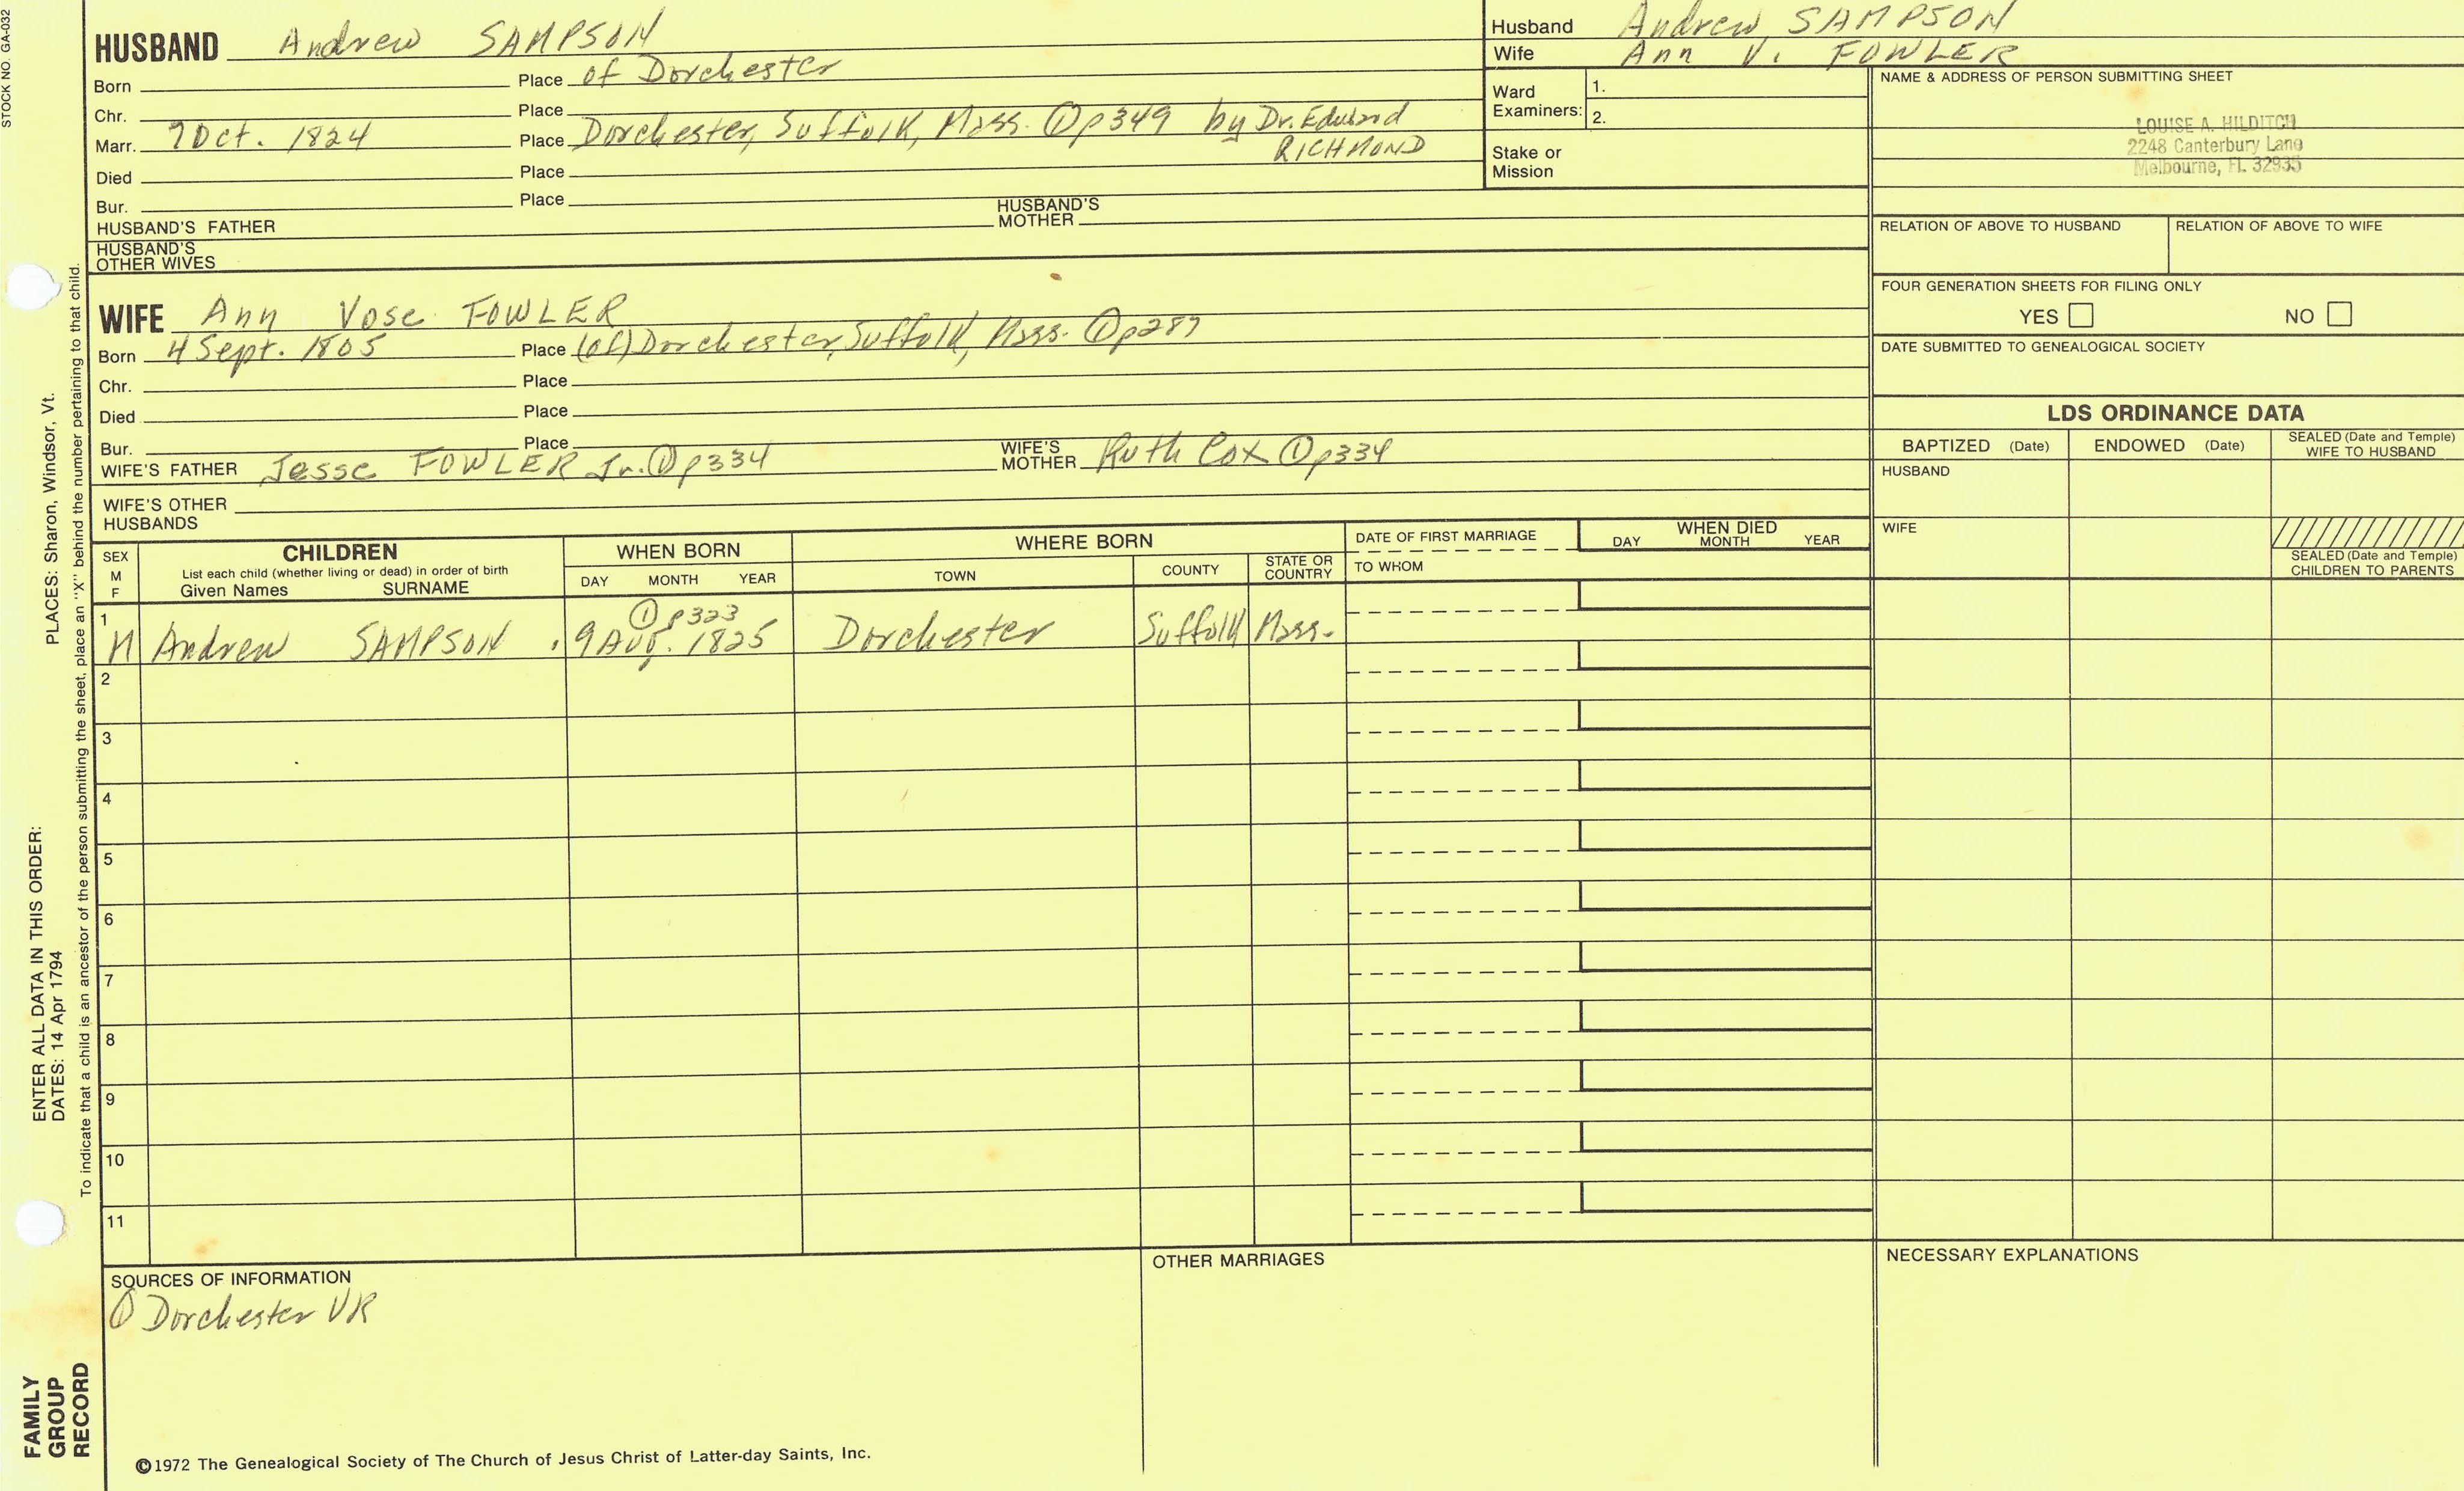 STOCK NO. GA-032
HUSBAND Andrew SAMPSON
Born Place of Dorchester
Chr. Place
Marr. 7 Oct. 1824 Place Dorchester, Suffolk, Mass. ① p349 by Dr. Edward
RICHMOND
Died Place
Bur. Place
HUSBAND'S FATHER HUSBAND'S MOTHER
HUSBAND'S
OTHER WIVES
Husband Andrew SAMPSON
Wife Ann V. FOWLER
Ward
Examiners: 1.
2.
Stake or
Mission
NAME & ADDRESS OF PERSON SUBMITTING SHEET
LOUISE A. HILDITCH
2248 Canterbury Lane
Melbourne, Fl. 32935
RELATION OF ABOVE TO HUSBAND RELATION OF ABOVE TO WIFE
FOUR GENERATION SHEETS FOR FILING ONLY
YES NO
DATE SUBMITTED TO GENEALOGICAL SOCIETY
WIFE Ann Vose FOWLER
Born 4 Sept. 1805 Place (of) Dorchester, Suffolk, Mass. ① p287
Chr. Place
Died Place
Bur. Place
WIFE'S FATHER Jesse FOWLER Jr. ① p334 WIFE'S MOTHER Ruth Cox ① p334
WIFE'S OTHER
HUSBANDS
LDS ORDINANCE DATA
BAPTIZED (Date) ENDOWED (Date) SEALED (Date and Temple)
WIFE TO HUSBAND
HUSBAND
WIFE
SEALED (Date and Temple)
CHILDREN TO PARENTS
SEX
M
F
CHILDREN
List each child (whether living or dead) in order of birth
Given Names SURNAME
WHEN BORN
DAY MONTH YEAR
WHERE BORN
TOWN COUNTY STATE OR
COUNTRY
DATE OF FIRST MARRIAGE
TO WHOM
WHEN DIED
DAY MONTH YEAR
1 ① p323
M Andrew SAMPSON 9 Aug. 1825 Dorchester Suffolk Mass.
2
3
4
5
6
7
8
9
10
11
SOURCES OF INFORMATION
① Dorchester VR
OTHER MARRIAGES
NECESSARY EXPLANATIONS
©1972 The Genealogical Society of The Church of Jesus Christ of Latter-day Saints, Inc.
FAMILY
GROUP
RECORD
ENTER ALL DATA IN THIS ORDER:
DATES: 14 Apr 1794 PLACES: Sharon, Windsor, Vt.
To indicate that a child is an ancestor of the person submitting the sheet, place an "X" behind the number pertaining to that child.